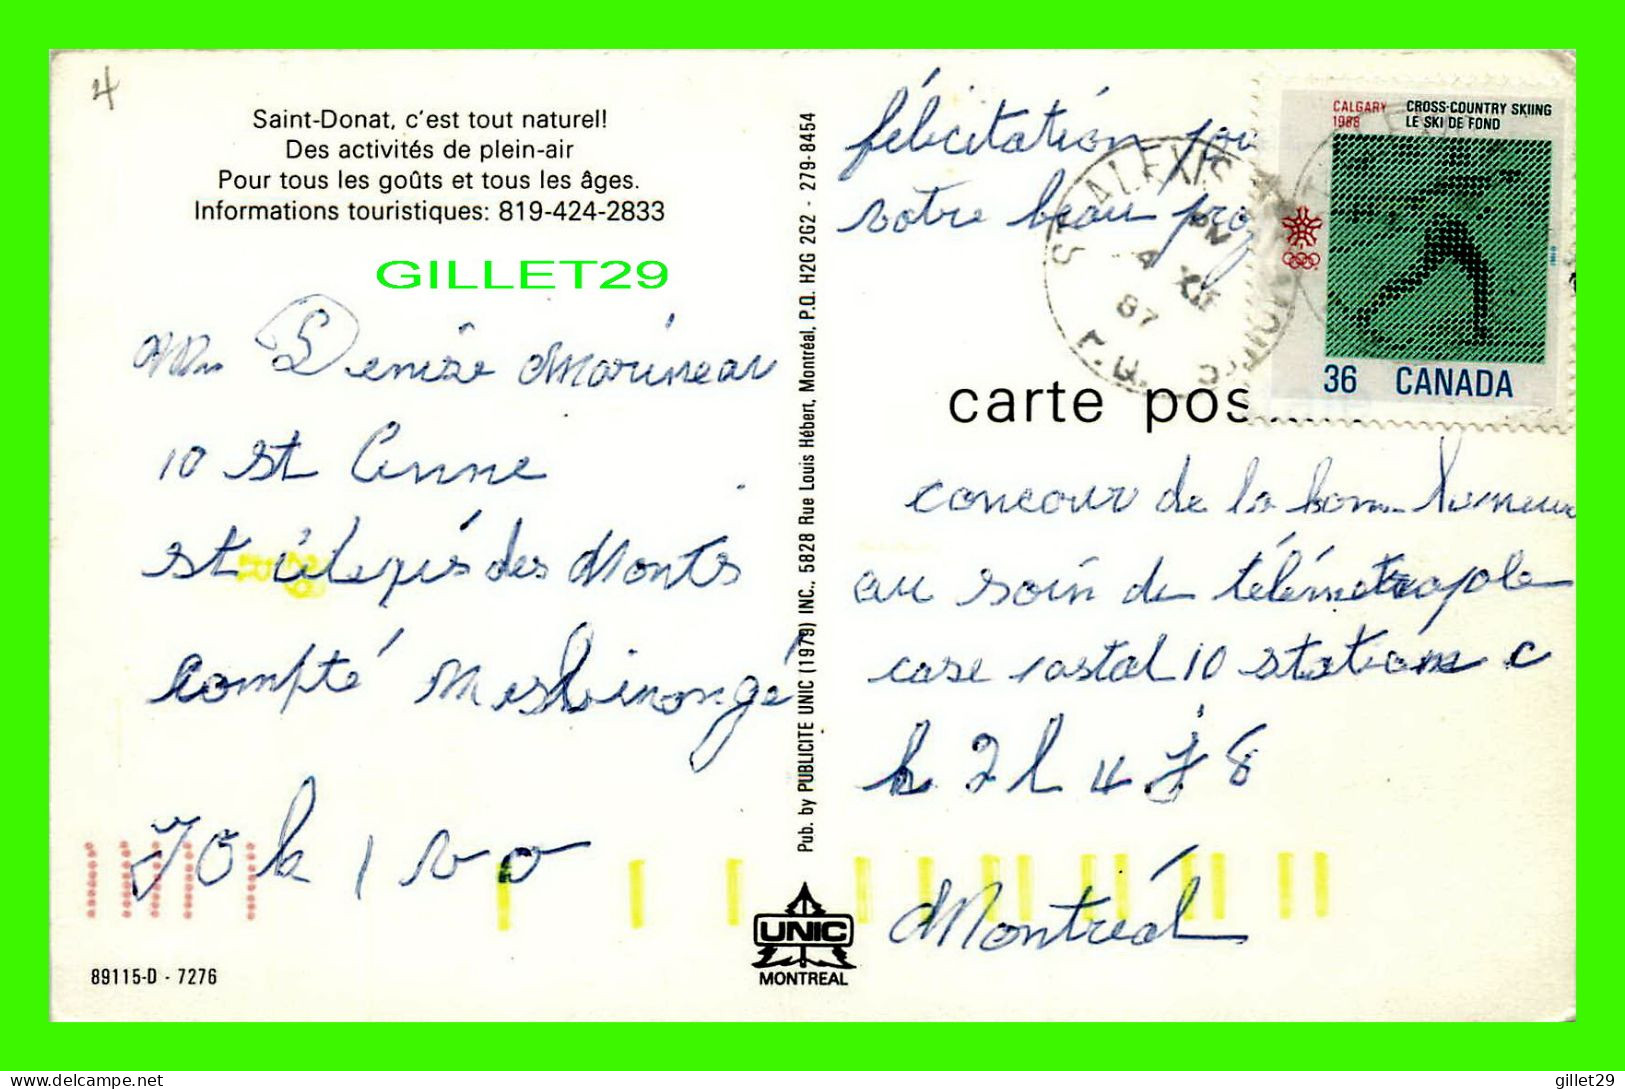 4
Saint-Donat, c'est tout naturel!
Des activités de plein-air
Pour tous les goûts et tous les âges.
Informations touristiques: 819-424-2833
GILLET29
Denise Marineau
10 st Anne
st alexis des Monts
Compté Maskinongé
J0k 1v0
89115-D - 7276
Pub. by PUBLICITE UNIC (1979) INC., 5828 Rue Louis Hébert, Montréal, P.Q. H2G 2G2 - 279-8454
UNIC
MONTREAL
félicitation pou
votre beau prog
ST-ALEXIS
PM
4 XII
87
P.Q.
CALGARY
1988
CROSS-COUNTRY SKIING
LE SKI DE FOND
36 CANADA
carte pos
concour de la bonne humeur
au soin de télémétropole
case postal 10 station c
h2l 4J8
Montréal
gillet29